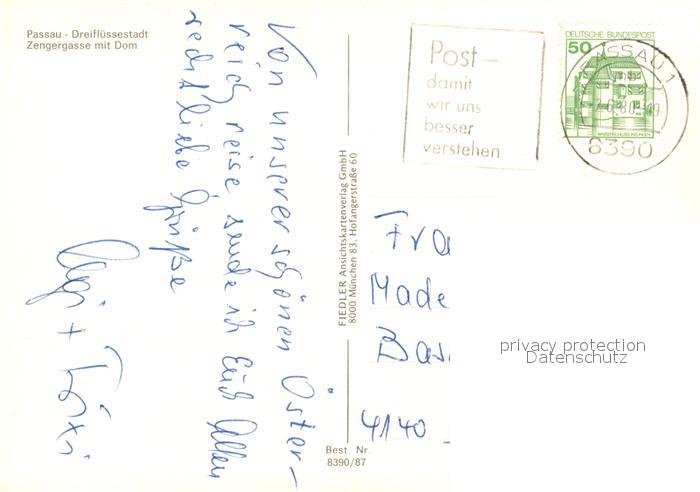 Passau - Dreiflüssestadt
Zengergasse mit Dom
Von unserer schönen Öster-
reich reise sende ich Euch Allen
recht liebe Grüße
FIEDLER Ansichtskartenverlag GmbH
8000 München 83, Hofangerstraße 60
Best. Nr.
8390/87
Post –
damit
wir uns
besser
verstehen
DEUTSCHE BUNDESPOST
50
PASSAU 1
8390
Fra
Made
Bas
4140
privacy protection
Datenschutz